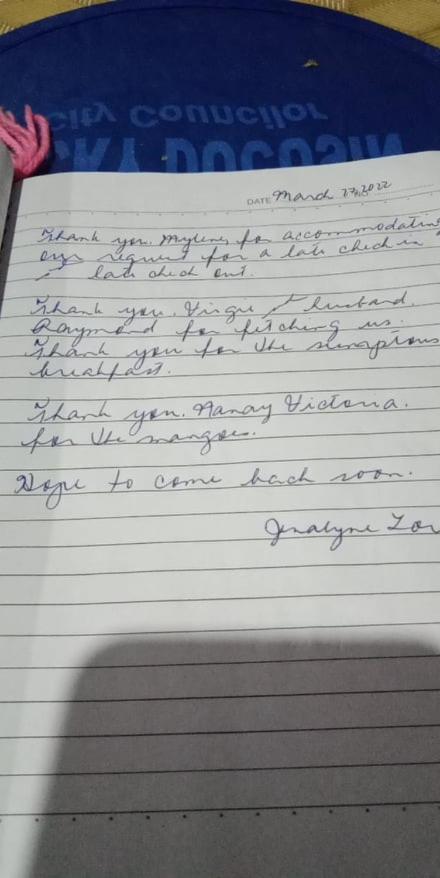 City Councilor
CKY DOCOSIN
DATE March 27, 2022
Thank you, Mylene, for accommodating
our request for a late check in
late check out.
Thank you, Virgie + husband,
Raymond for fetching us.
Thank you for the sumptous
breakfast.
Thank you, Nanay Victoria.
for the mangoes.
Hope to come back soon.
Jenalyne